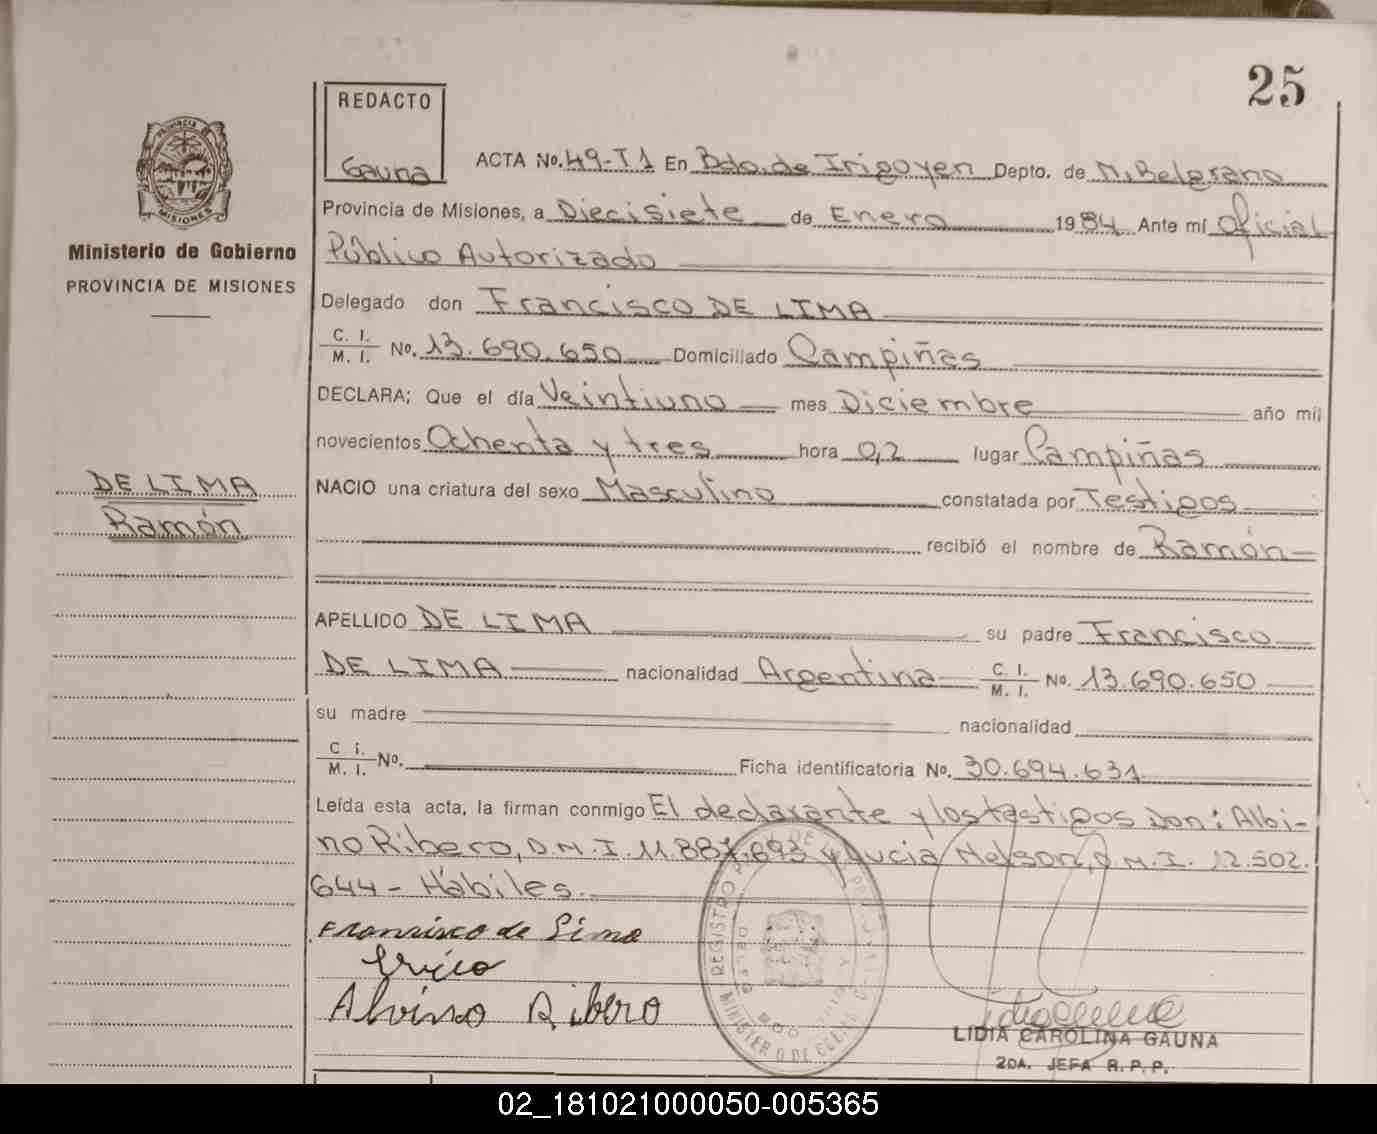 25
REDACTO
Gauna
ACTA No. 49-T1 En Bdo. de Irigoyen Depto. de M. Belgrano
Provincia de Misiones, a Diecisiete de Enero 1984 Ante mí Oficial
Público Autorizado
Delegado don Francisco DE LIMA
C. I.
M. I. No. 13.690.650 Domiciliado Campiñas
DECLARA; Que el día Veintiuno mes Diciembre año mil
novecientos Ochenta y tres hora 0,2 lugar Campiñas
NACIO una criatura del sexo Masculino constatada por Testigos
recibió el nombre de Ramón
APELLIDO DE LIMA su padre Francisco
DE LIMA nacionalidad Argentina C. I. M. I. No. 13.690.650
su madre nacionalidad
C. I.
M. I. No. Ficha identificatoria No. 30.694.631
Leída esta acta, la firman conmigo El declarante y los testigos Don: Albi-
no Ribero, D.M.I. 11.887.693 y Lucia Nelson, D.M.I. 12.502.
644 - Hábiles.
Francisco de Lima
Alvino Ribero
LIDIA CAROLINA GAUNA
2DA. JEFA R. P. P.
PROVINCIA DE
MISIONES
Ministerio de Gobierno
PROVINCIA DE MISIONES
DE LIMA
Ramón
REGISTRO
MINISTERIO DE
02_181021000050-005365